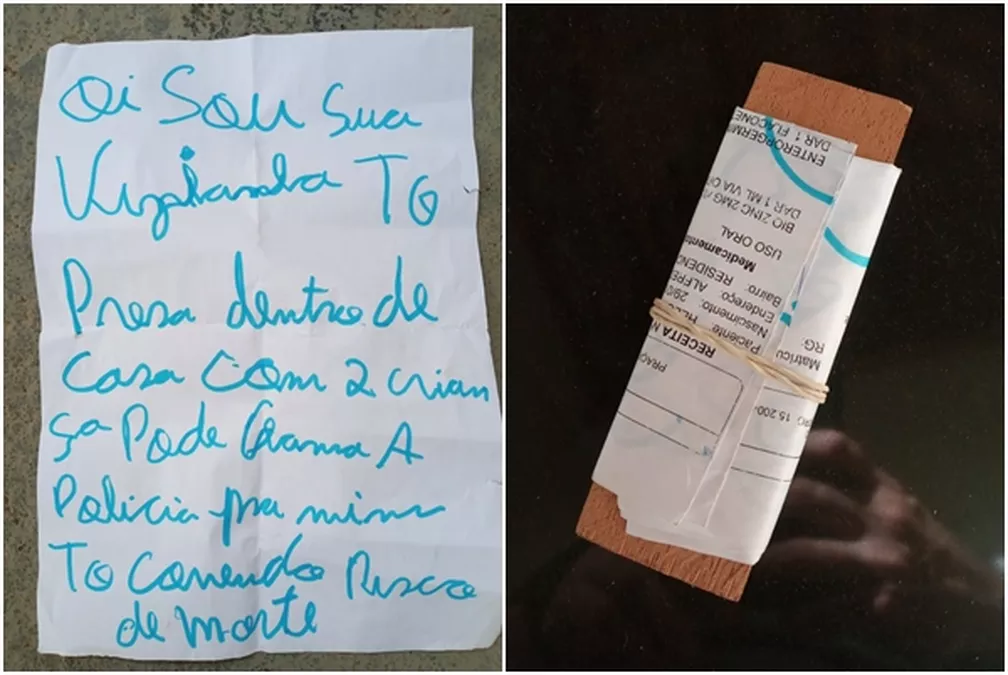 Oi Sou Sua
TO
Presa dentro de
Casa Com 2 crian
ça Pode Chama A
Policia pra mim
To Correndo Risco
de morte
PRAÇ
RECEITA M
Paciente: HE
Nascimento: 29/0
Endereço: ALFRE
Bairro: RESIDENC
Medicamento
USO ORAL
BIO ZINC 2MG/
DAR 1 ML VIA O
ENTEROGERMI
DAR 1 FLACONE
15.200-
Matricu
RG: